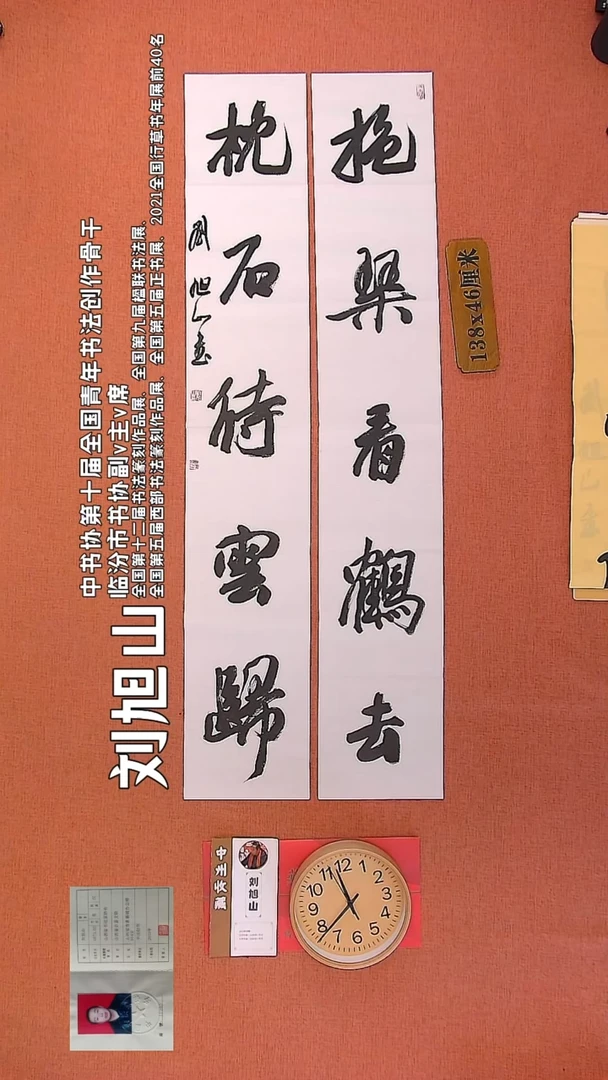 拖琹看鶴去
枕石待雲歸
刘旭山書
138x46厘米
刘旭山
中书协第十届全国青年书法创作骨干
临汾市书协副v主v席
全国第十二届书法篆刻作品展、全国第九届楹联书法展、
全国第五届西部书法篆刻作品展、全国第五届正书展、2021全国行草书年展前40名
刘旭山
12
1
2
3
4
5
6
7
8
9
10
11